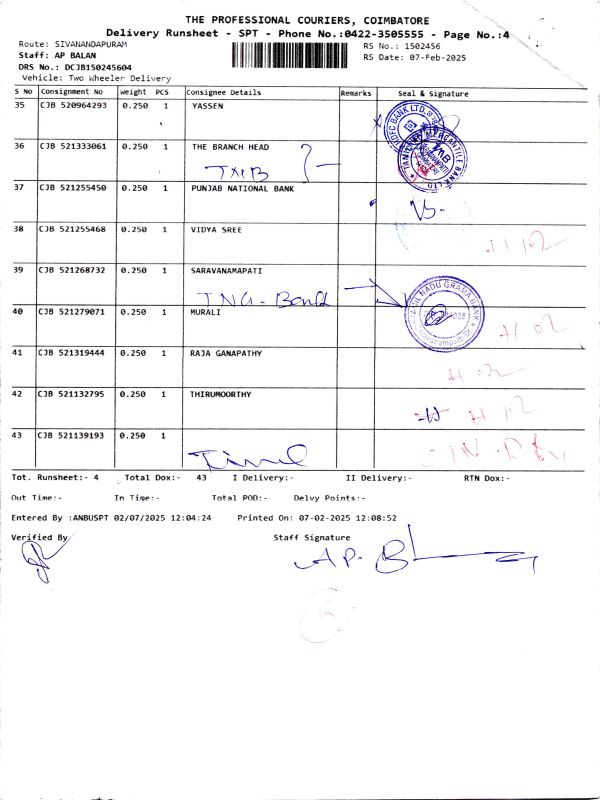 THE PROFESSIONAL COURIERS, COIMBATORE
Delivery Runsheet - SPT - Phone No.:0422-3505555 - Page No.:4
Route: SIVANANDAPURAM
RS No.: 1502456
Staff: AP BALAN
RS Date: 07-Feb-2025
DRS No.: DCJB150245604
Vehicle: Two Wheeler Delivery
S No Consignment No Weight PCS Consignee Details Remarks Seal & Signature
35 CJB 520964293 0.250 1 YASSEN
36 CJB 521333061 0.250 1 THE BRANCH HEAD
TMB
37 CJB 521255450 0.250 1 PUNJAB NATIONAL BANK
38 CJB 521255468 0.250 1 VIDYA SREE
39 CJB 521268732 0.250 1 SARAVANAMAPATI
TNG - Bank
40 CJB 521279071 0.250 1 MURALI
41 CJB 521319444 0.250 1 RAJA GANAPATHY
42 CJB 521132795 0.250 1 THIRUMOORTHY
43 CJB 521139193 0.250 1
Tot. Runsheet:- 4 Total Dox:- 43 I Delivery:- II Delivery:- RTN Dox:-
Out Time:- In Time:- Total POD:- Delvy Points:-
Entered By :ANBUSPT 02/07/2025 12:04:24 Printed On: 07-02-2025 12:08:52
Verified By
Staff Signature
AP. B